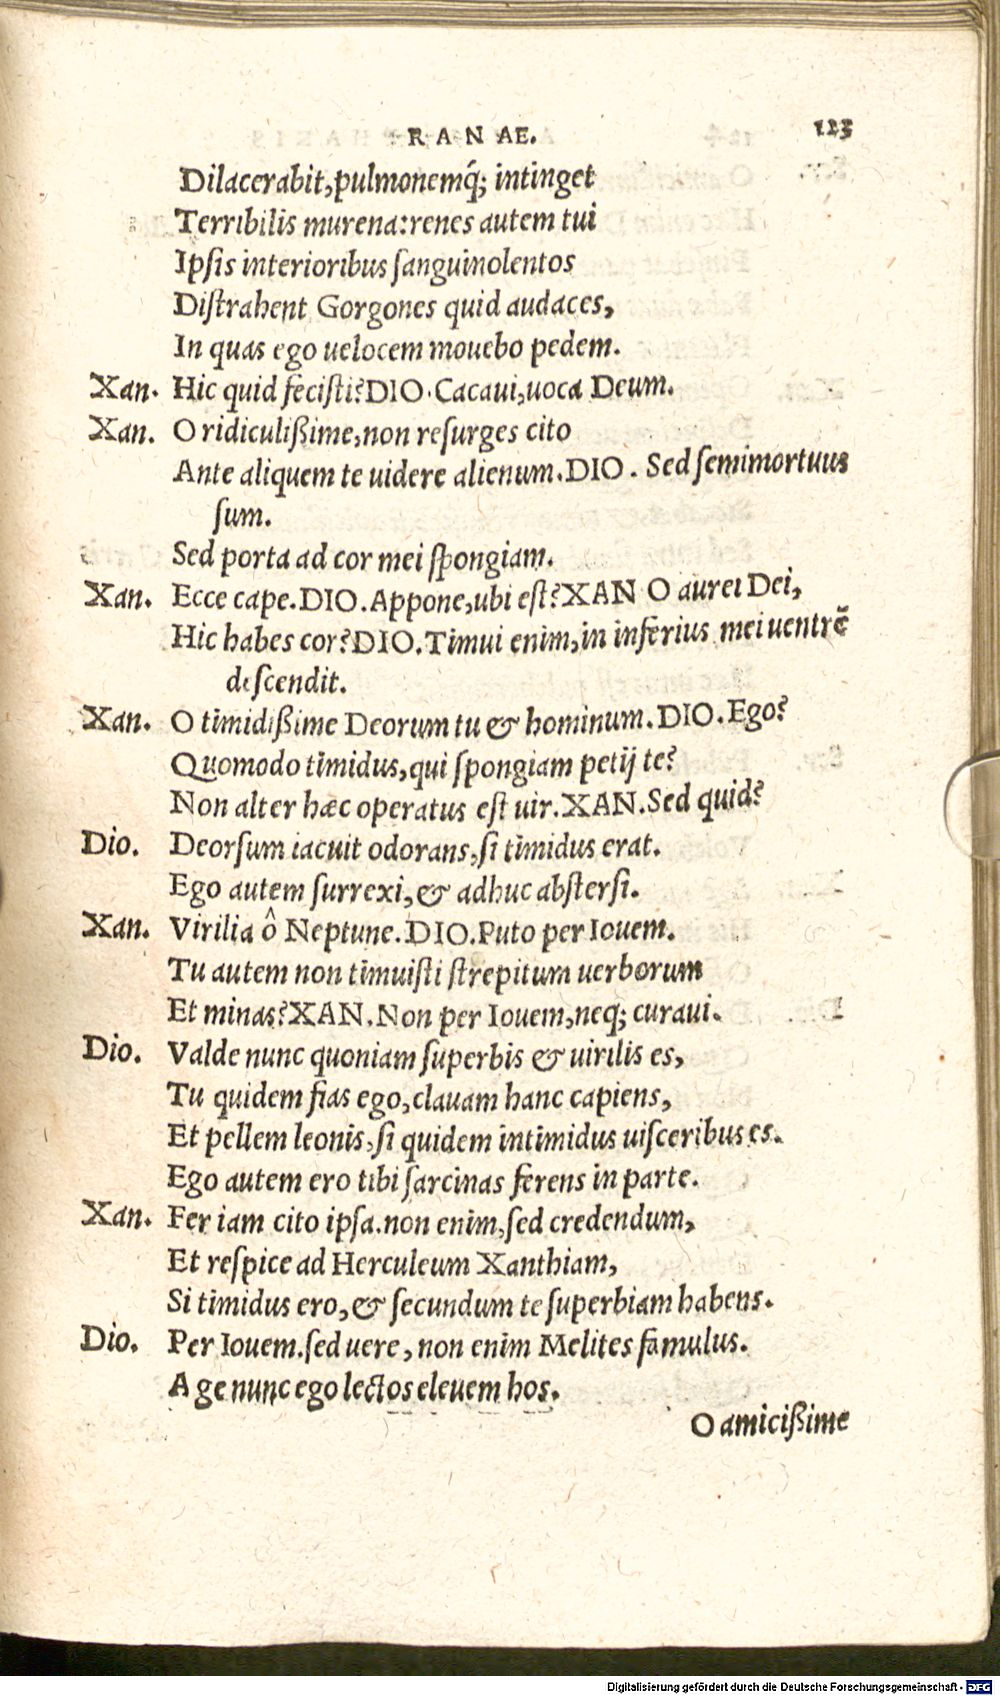 RANAE. 123
Dilacerabit, pulmonemq́; intinget
Terribilis murena: renes autem tui
Ipsis interioribus sanguinolentos
Distrahent Gorgones quid audaces,
In quas ego uelocem mouebo pedem.
Xan. Hic quid fecisti? DIO. Cacaui, uoca Deum.
Xan. O ridiculißime, non resurges cito
Ante aliquem te uidere alienum. DIO. Sed semimortuus
sum.
Sed porta ad cor mei spongiam.
Xan. Ecce cape. DIO. Appone, ubi est? XAN O aurei Dei,
Hic habes cor? DIO. Timui enim, in inferius mei uentrē
descendit.
Xan. O timidißime Deorum tu & hominum. DIO. Ego?
Quomodo timidus, qui spongiam petij te?
Non alter hæc operatus est uir. XAN. Sed quid?
Dio. Deorsum iacuit odorans, si timidus erat.
Ego autem surrexi, & adhuc abstersi.
Xan. Virilia ô Neptune. DIO. Puto per Iouem.
Tu autem non timuisti strepitum uerborum
Et minas? XAN. Non per Iouem, neq; curaui.
Dio. Valde nunc quoniam superbis & uirilis es,
Tu quidem fias ego, clauam hanc capiens,
Et pellem leonis, si quidem intimidus uisceribus es.
Ego autem ero tibi sarcinas ferens in parte.
Xan. Fer iam cito ipsa. non enim, sed credendum,
Et respice ad Herculeum Xanthiam,
Si timidus ero, & secundum te superbiam habens.
Dio. Per Iouem. sed uere, non enim Melites famulus.
Age nunc ego lectos eleuem hos.
O amicißime
Digitalisierung gefördert durch die Deutsche Forschungsgemeinschaft - DFG